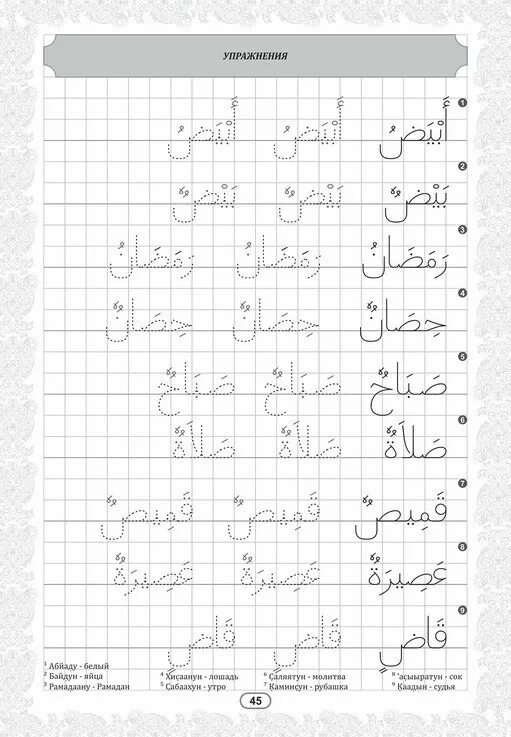 УПРАЖНЕНИЯ
1
أَبْيَضُ أَبْيَضُ أَبْيَضُ
2
بَيْضٌ بَيْضٌ بَيْضٌ
3
رَمَضَانُ رَمَضَانُ رَمَضَانُ
4
حِصَانٌ حِصَانٌ حِصَانٌ
5
صَبَاحٌ صَبَاحٌ صَبَاحٌ
6
صَلاَةٌ صَلاَةٌ صَلاَةٌ
7
قَمِيصٌ قَمِيصٌ قَمِيصٌ
8
عَصِيرَةٌ عَصِيرَةٌ عَصِيرَةٌ
9
قَاضٍ قَاضٍ قَاضٍ
1 Абйаду - белый
2 Байдун - яйца
3 Рамадаану - Рамадан
4 Хисаанун - лошадь
5 Сабаахун - утро
6 Саляятун - молитва
7 Камиисун - рубашка
8 ‘асыыратун - сок
9 Каадын - судья
45